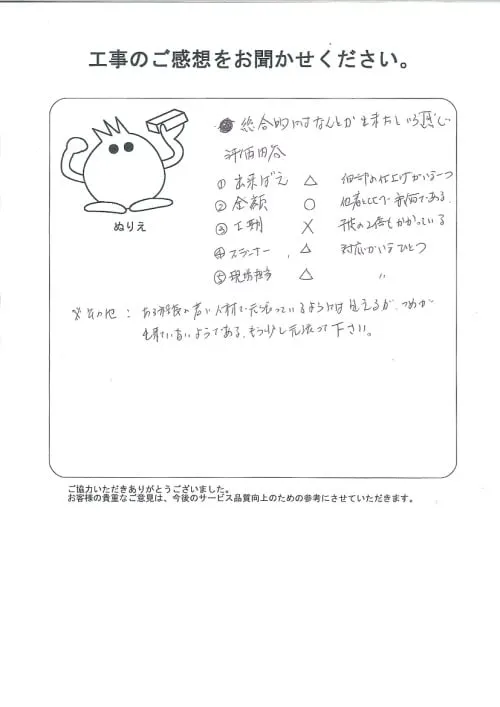 工事のご感想をお聞かせください。
総合的にはなんとか出来たという感じ
評価内容
① 出来ばえ △ 細部の仕上げがいま一つ
② 金額 ○ 他者と比べて安価である。
③ 工期 × 予定の2倍もかかっている
④ プランナー △ 対応がいまひとつ
⑤ 現場担当 △ 〃
ぬりえ
※その他：ある程度の若い人材で元張っているようには見えるが、つめが
もう少し元張って下さい。
ご協力いただきありがとうございました。
お客様の貴重なご意見は、今後のサービス品質向上のための参考にさせていただきます。